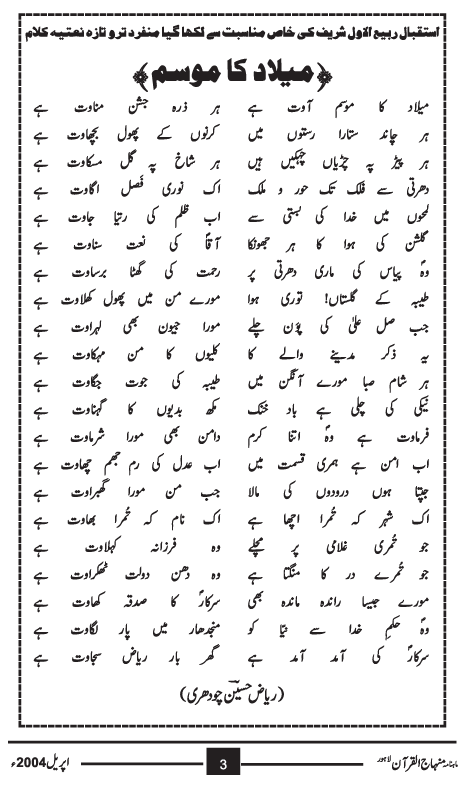 استقبال ربیع الاول شریف کی خاص مناسبت سے لکھا گیا منفرد تر و تازہ نعتیہ کلام
﴿میلاد کا موسم﴾
میلاد کا موسم آوت ہے ہر ذرہ جشن مناوت ہے
ہر چاند ستارا رستوں میں کرنوں کے پھول بچھاوت ہے
ہر پیڑ پہ چڑیاں چہکیں ہیں ہر شاخ پہ گل مسکاوت ہے
دھرتی سے فلک تک حور و ملک اک نوری فصل اگاوت ہے
لمحوں میں خدا کی بستی سے اب ظلم کی رتیا جاوت ہے
گلشن کی ہوا کا ہر جھونکا آقاؐ کی نعت سناوت ہے
وہؐ پیاس کی ماری دھرتی پر رحمت کی گھٹا برساوت ہے
طیبہ کے گلستاں! توری ہوا مورے من میں پھول کھلاوت ہے
جب صل علیٰ کی پؤن چلے مورا جیون بھی لہراوت ہے
یہ ذکر مدینے والے کا کلیوں کا من مہکاوت ہے
ہر شام صبا مورے آنگن میں طیبہ کی جوت جگاوت ہے
نیکی کی چلی ہے باد خنک مکھ بدیوں کا گہناوت ہے
فرماوت ہے وہؐ اتنا کرم دامن بھی مورا شرماوت ہے
اب امن ہے ہمری قسمت میں اب عدل کی رم جھم چھاوت ہے
جپتا ہوں درودوں کی مالا جب من مورا گھبراوت ہے
اک شہر کہ تمرا اچھا ہے اک نام کہ تمرا بھاوت ہے
جو تمری غلامی پر مچلے وہ فرزانہ کہلاوت ہے
جو تمرے در کا منگتا ہے وہ دھن دولت ٹھکراوت ہے
مورے جیسا راندہ ماندہ بھی سرکارؐ کا صدقہ کھاوت ہے
وہؐ حکمِ خدا سے نیّا کو منجدھار میں پار لگاوت ہے
سرکارؐ کی آمد آمد ہے گھر بار ریاضؔ سجاوت ہے
(ریاض حسین چودھری)
ماہنامہ منہاج القرآن لاہور 3 اپریل 2004ء